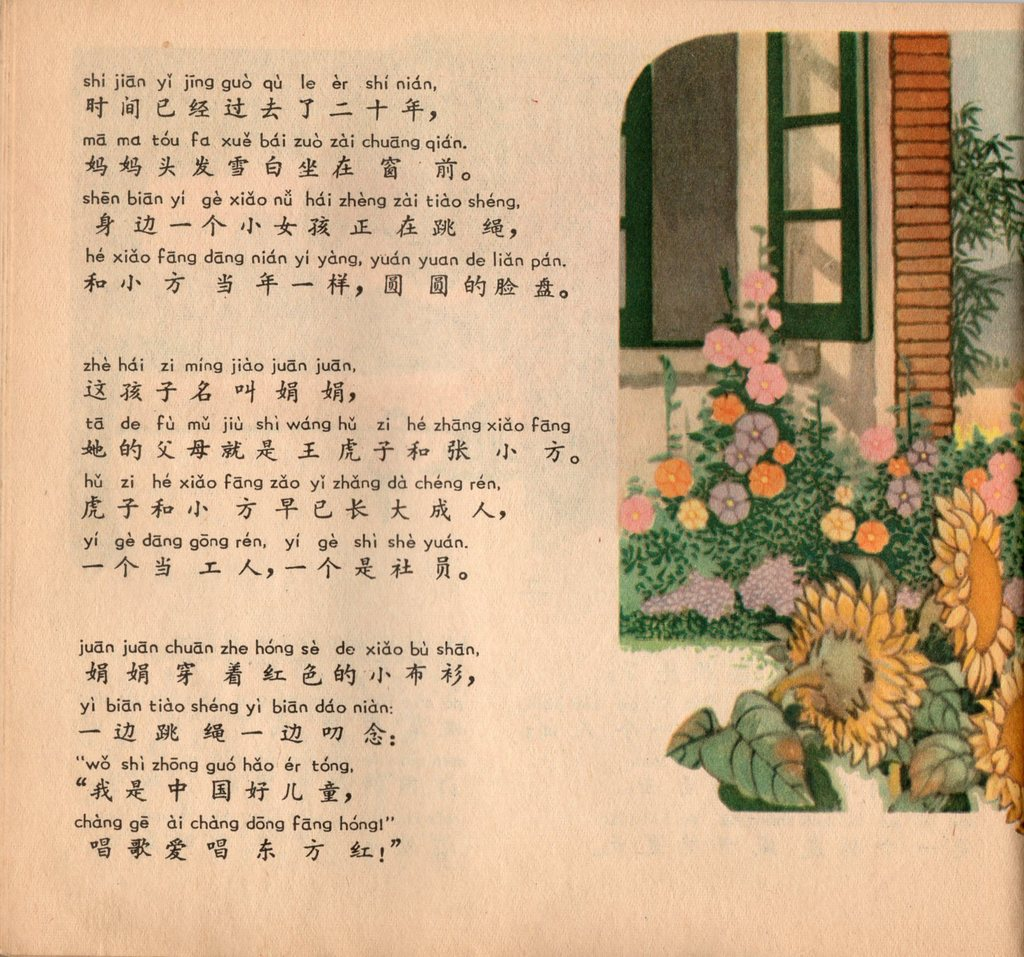 shí jiān yǐ jīng guò qù le èr shí nián,
时间已经过去了二十年，
mā ma tóu fa xuě bái zuò zài chuāng qián.
妈妈头发雪白坐在窗前。
shēn biān yí gè xiǎo nǚ hái zhèng zài tiào shéng,
身边一个小女孩正在跳绳，
hé xiǎo fāng dāng nián yí yàng, yuán yuan de liǎn pán.
和小方当年一样，圆圆的脸盘。
zhè hái zi míng jiào juān juān,
这孩子名叫娟娟，
tā de fù mǔ jiù shì wáng hǔ zi hé zhāng xiǎo fāng
她的父母就是王虎子和张小方。
hǔ zi hé xiǎo fāng zǎo yǐ zhǎng dà chéng rén,
虎子和小方早已长大成人，
yí gè dāng gōng rén, yí gè shì shè yuán.
一个当工人，一个是社员。
juān juān chuān zhe hóng sè de xiǎo bù shān,
娟娟穿着红色的小布衫，
yì biān tiào shéng yì biān dáo niàn:
一边跳绳一边叨念：
"wǒ shì zhōng guó hǎo ér tóng,
“我是中国好儿童，
chàng gē ài chàng dōng fāng hóng!"
唱歌爱唱东方红！”